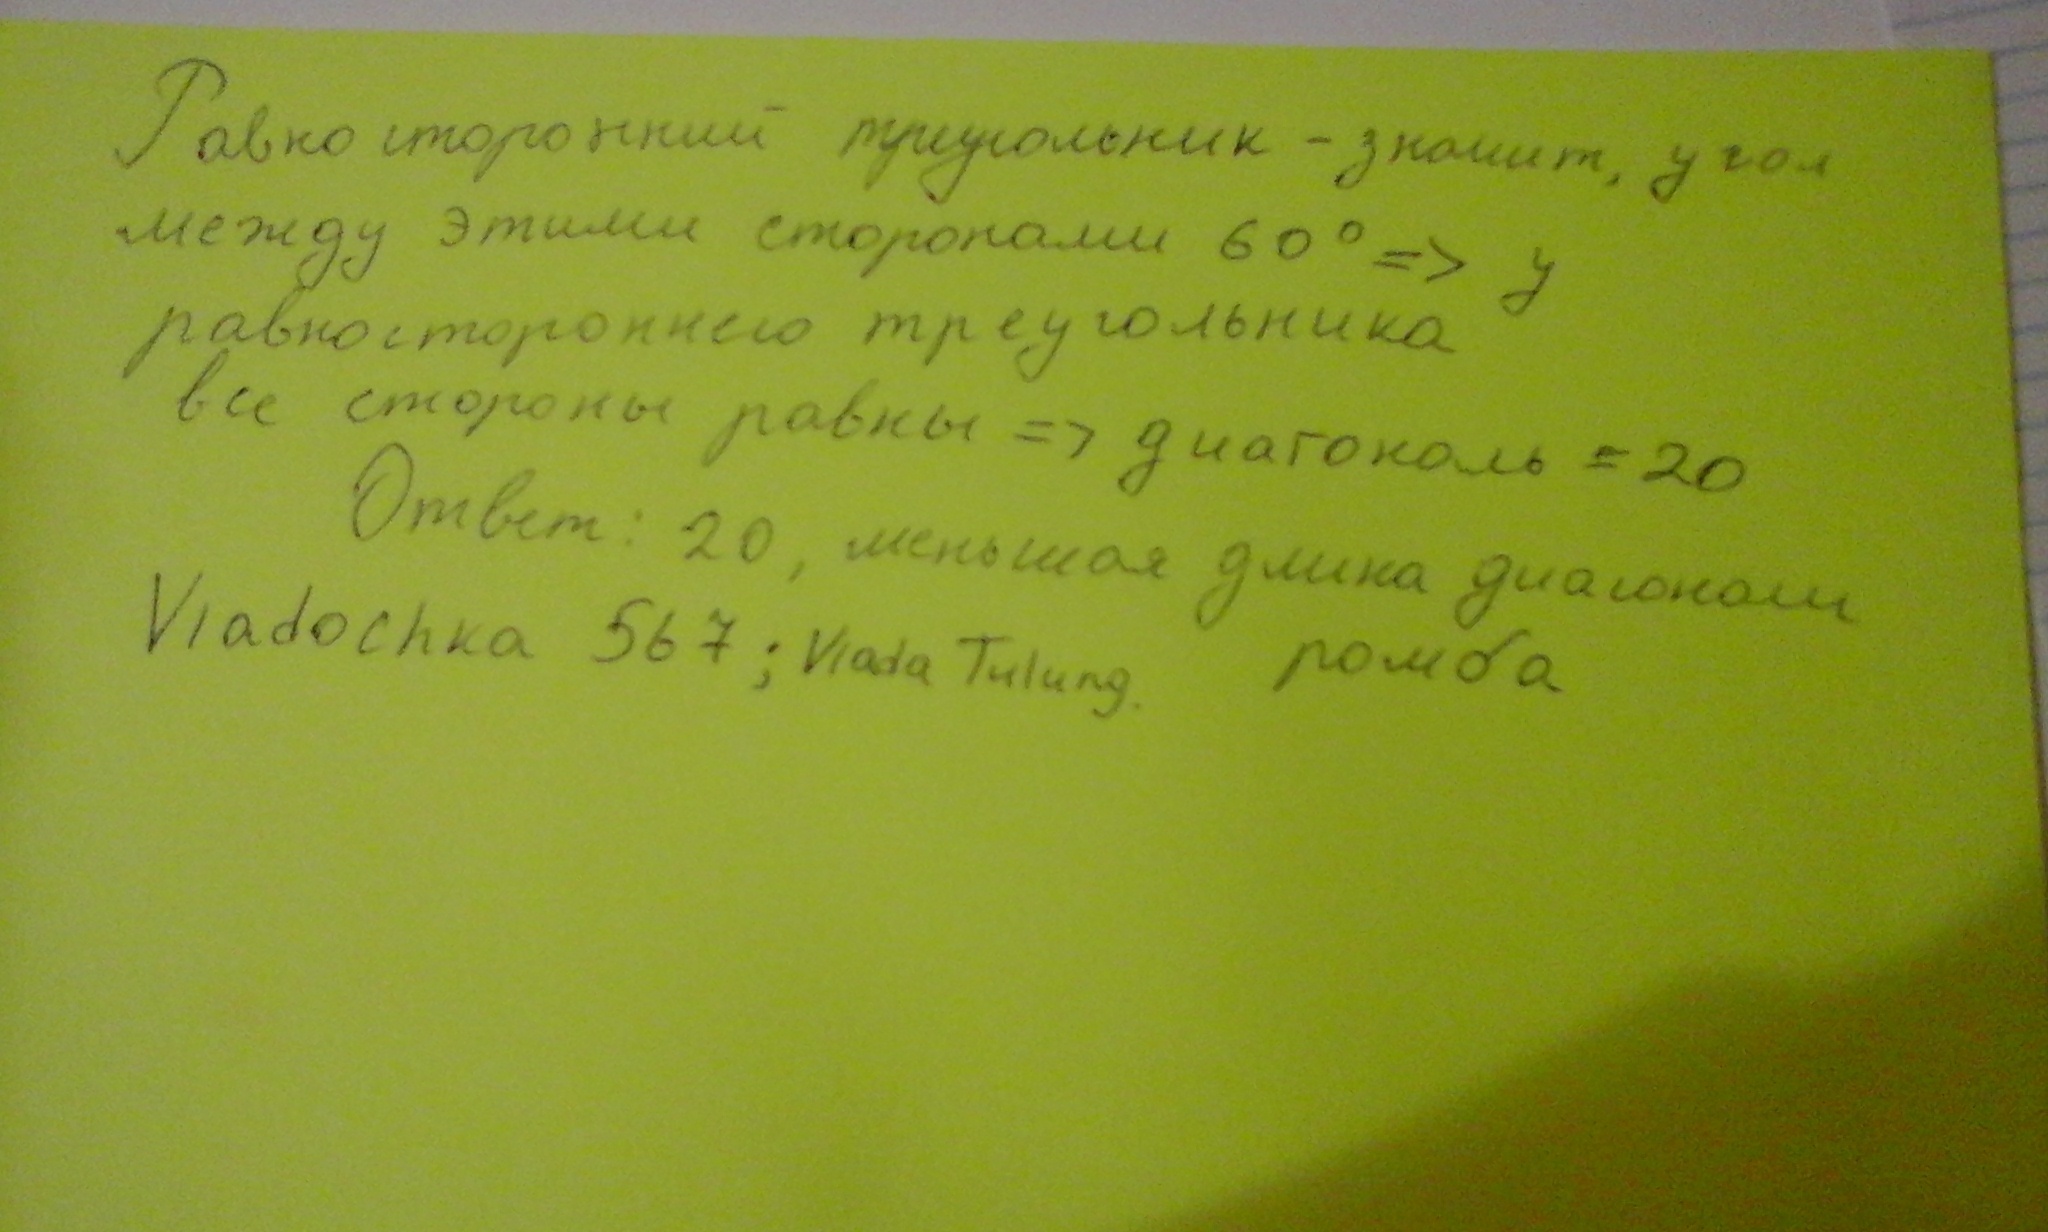 Равносторонний треугольник - значит, угол
между этими сторонами 60° => у
равностороннего треугольника
все стороны равны => диагональ = 20
Ответ: 20, меньшая длина диагонали
ромба
Vladochka 567; Vlada Tulung.